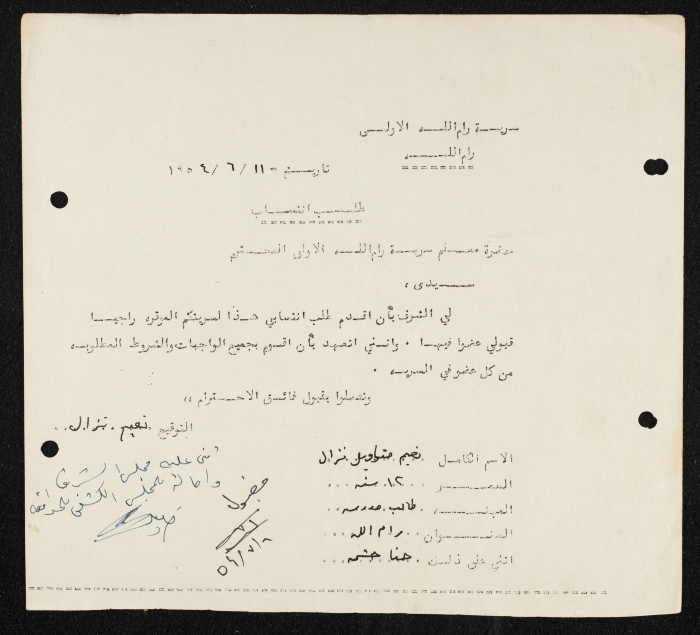 سرية رام الله الاولى
رام الله
تاريخ - ١١ / ٦ / ١٩٥٤
طلب انتساب
حضرة معلم سرية رام الله الاولى المحترم
سيدي ،
لي الشرف بأن اقدم طلب انتسابي هذا لسريتكم الموقره راجيا
قبولي عضوا فيها . وانني اتعهد بأن اقوم بجميع الواجبات والشروط المطلوبه
من كل عضو في السريه .
وتفضلوا بقبول فائق الاحترام ،،
التوقيع . نعيم . نزال . .
الاسم الكامل . نعيم نزال
العمر . . ١٢ سنه . . .
المهنه . طالب مدرسه . .
العنوان . . رام الله . . .
اثني على ذلك . حنا . . .
اثنى عليه مجلس الشرف
واحاله للمجلس الكشفي للموافقه
مقبول